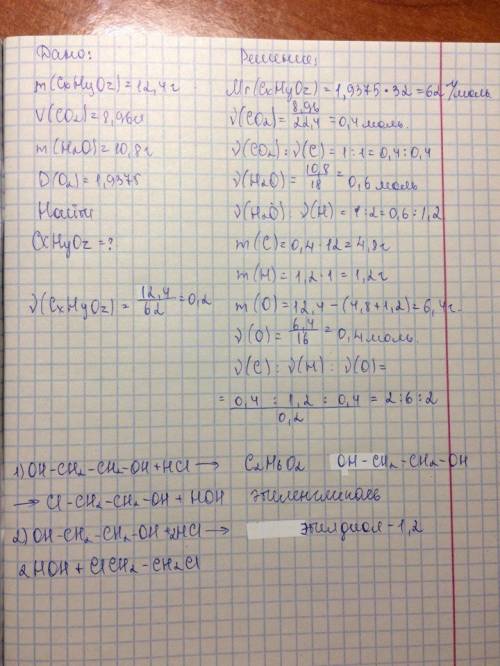 Дано:
m(CxHyOz)=12,4г
V(CO₂)=8,96л
m(H₂O)=10,8г
D(O₂)=1,9375
Найти
CxHyOz=?
ν(CxHyOz)=12,4/62=0,2
Решение:
Mr(CxHyOz)=1,9375·32=62г/моль
ν(CO₂)=8,96/22,4=0,4моль.
ν(CO₂):ν(C)=1:1=0,4:0,4
ν(H₂O)=10,8/18=0,6моль
ν(H₂O):ν(H)=1:2=0,6:1,2
m(C)=0,4·12=4,8г
m(H)=1,2·1=1,2г
m(O)=12,4-(4,8+1,2)=6,4г.
ν(O)=6,4/16=0,4моль.
ν(C):ν(H):ν(O)=
=0,4:1,2:0,4/0,2=2:6:2
C₂H₆O₂ OH-CH₂-CH₂-OH
этиленгликоль
этилдиол-1,2
1)OH-CH₂-CH₂-OH+HCl→
→Cl-CH₂-CH₂-OH+HOH
2)OH-CH₂-CH₂-OH+2HCl→
2HOH+ClCH₂-CH₂Cl